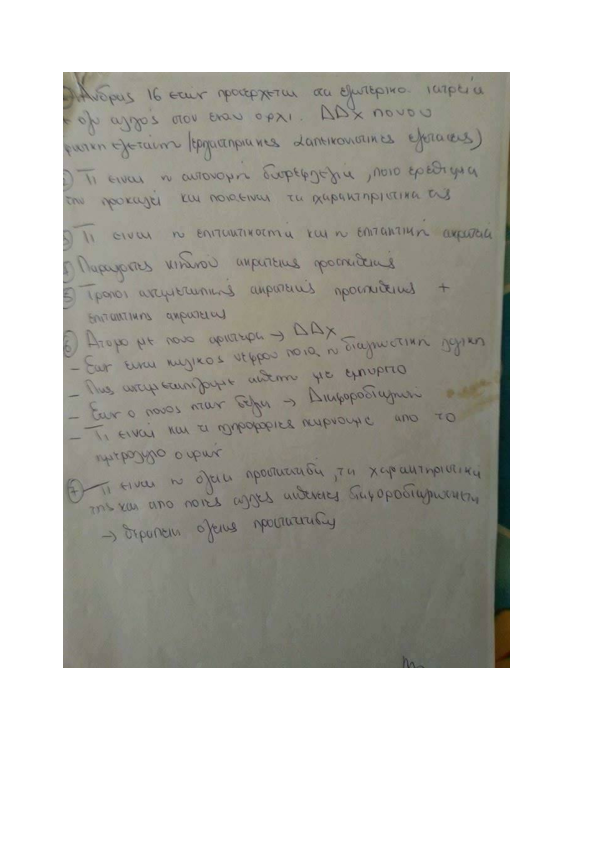 ① Ανδρας 16 ετων προσερχεται στα εξωτερικα ιατρεια
+ οξυ αλγος στον εναν ορχι. ΔΔx πονου
φυσικη εξεταση / εργαστηριακες απεικονιστικες εξετασεις)
② Τι ειναι η αυτονομη δυσρεφλεξια, ποιο ερεθισμα
την προκαλει και ποια ειναι τα χαρακτηριστικα της
③ Τι ειναι η επιτακτικοτητα και η επιτακτικη ακρατεια
④ Παραγοντες κινδυνου ακρατειας προσπαθειας
⑤ Τροποι αντιμετωπισης ακρατειας προσπαθειας +
επιτακτικης ακρατειας
⑥ Ατομο με πονο αριστερα → ΔΔx
- Εαν ειναι κωλικος νεφρου ποια η διαγνωστικη
- Πως αντιμετωπιζουμε ασθενη με εμπυρετο
- Εαν ο πονος ηταν δεξια → Διαφοροδιαγνωση
- Τι ειναι και τι πληροφοριες παιρνουμε απο το
ημερολογιο ουρων
⑦ Τι ειναι η οξεια προστατιτιδα, τα χαρακτηριστικα
της και απο ποιες αλλες ασθενειες διαφοροδιαγιγνωσκεται
→ θεραπεια οξειας προστατιτιδας